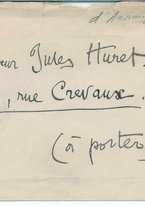 d'Annunz
eur Jules Huret
, rue Crevaux.
(à porter